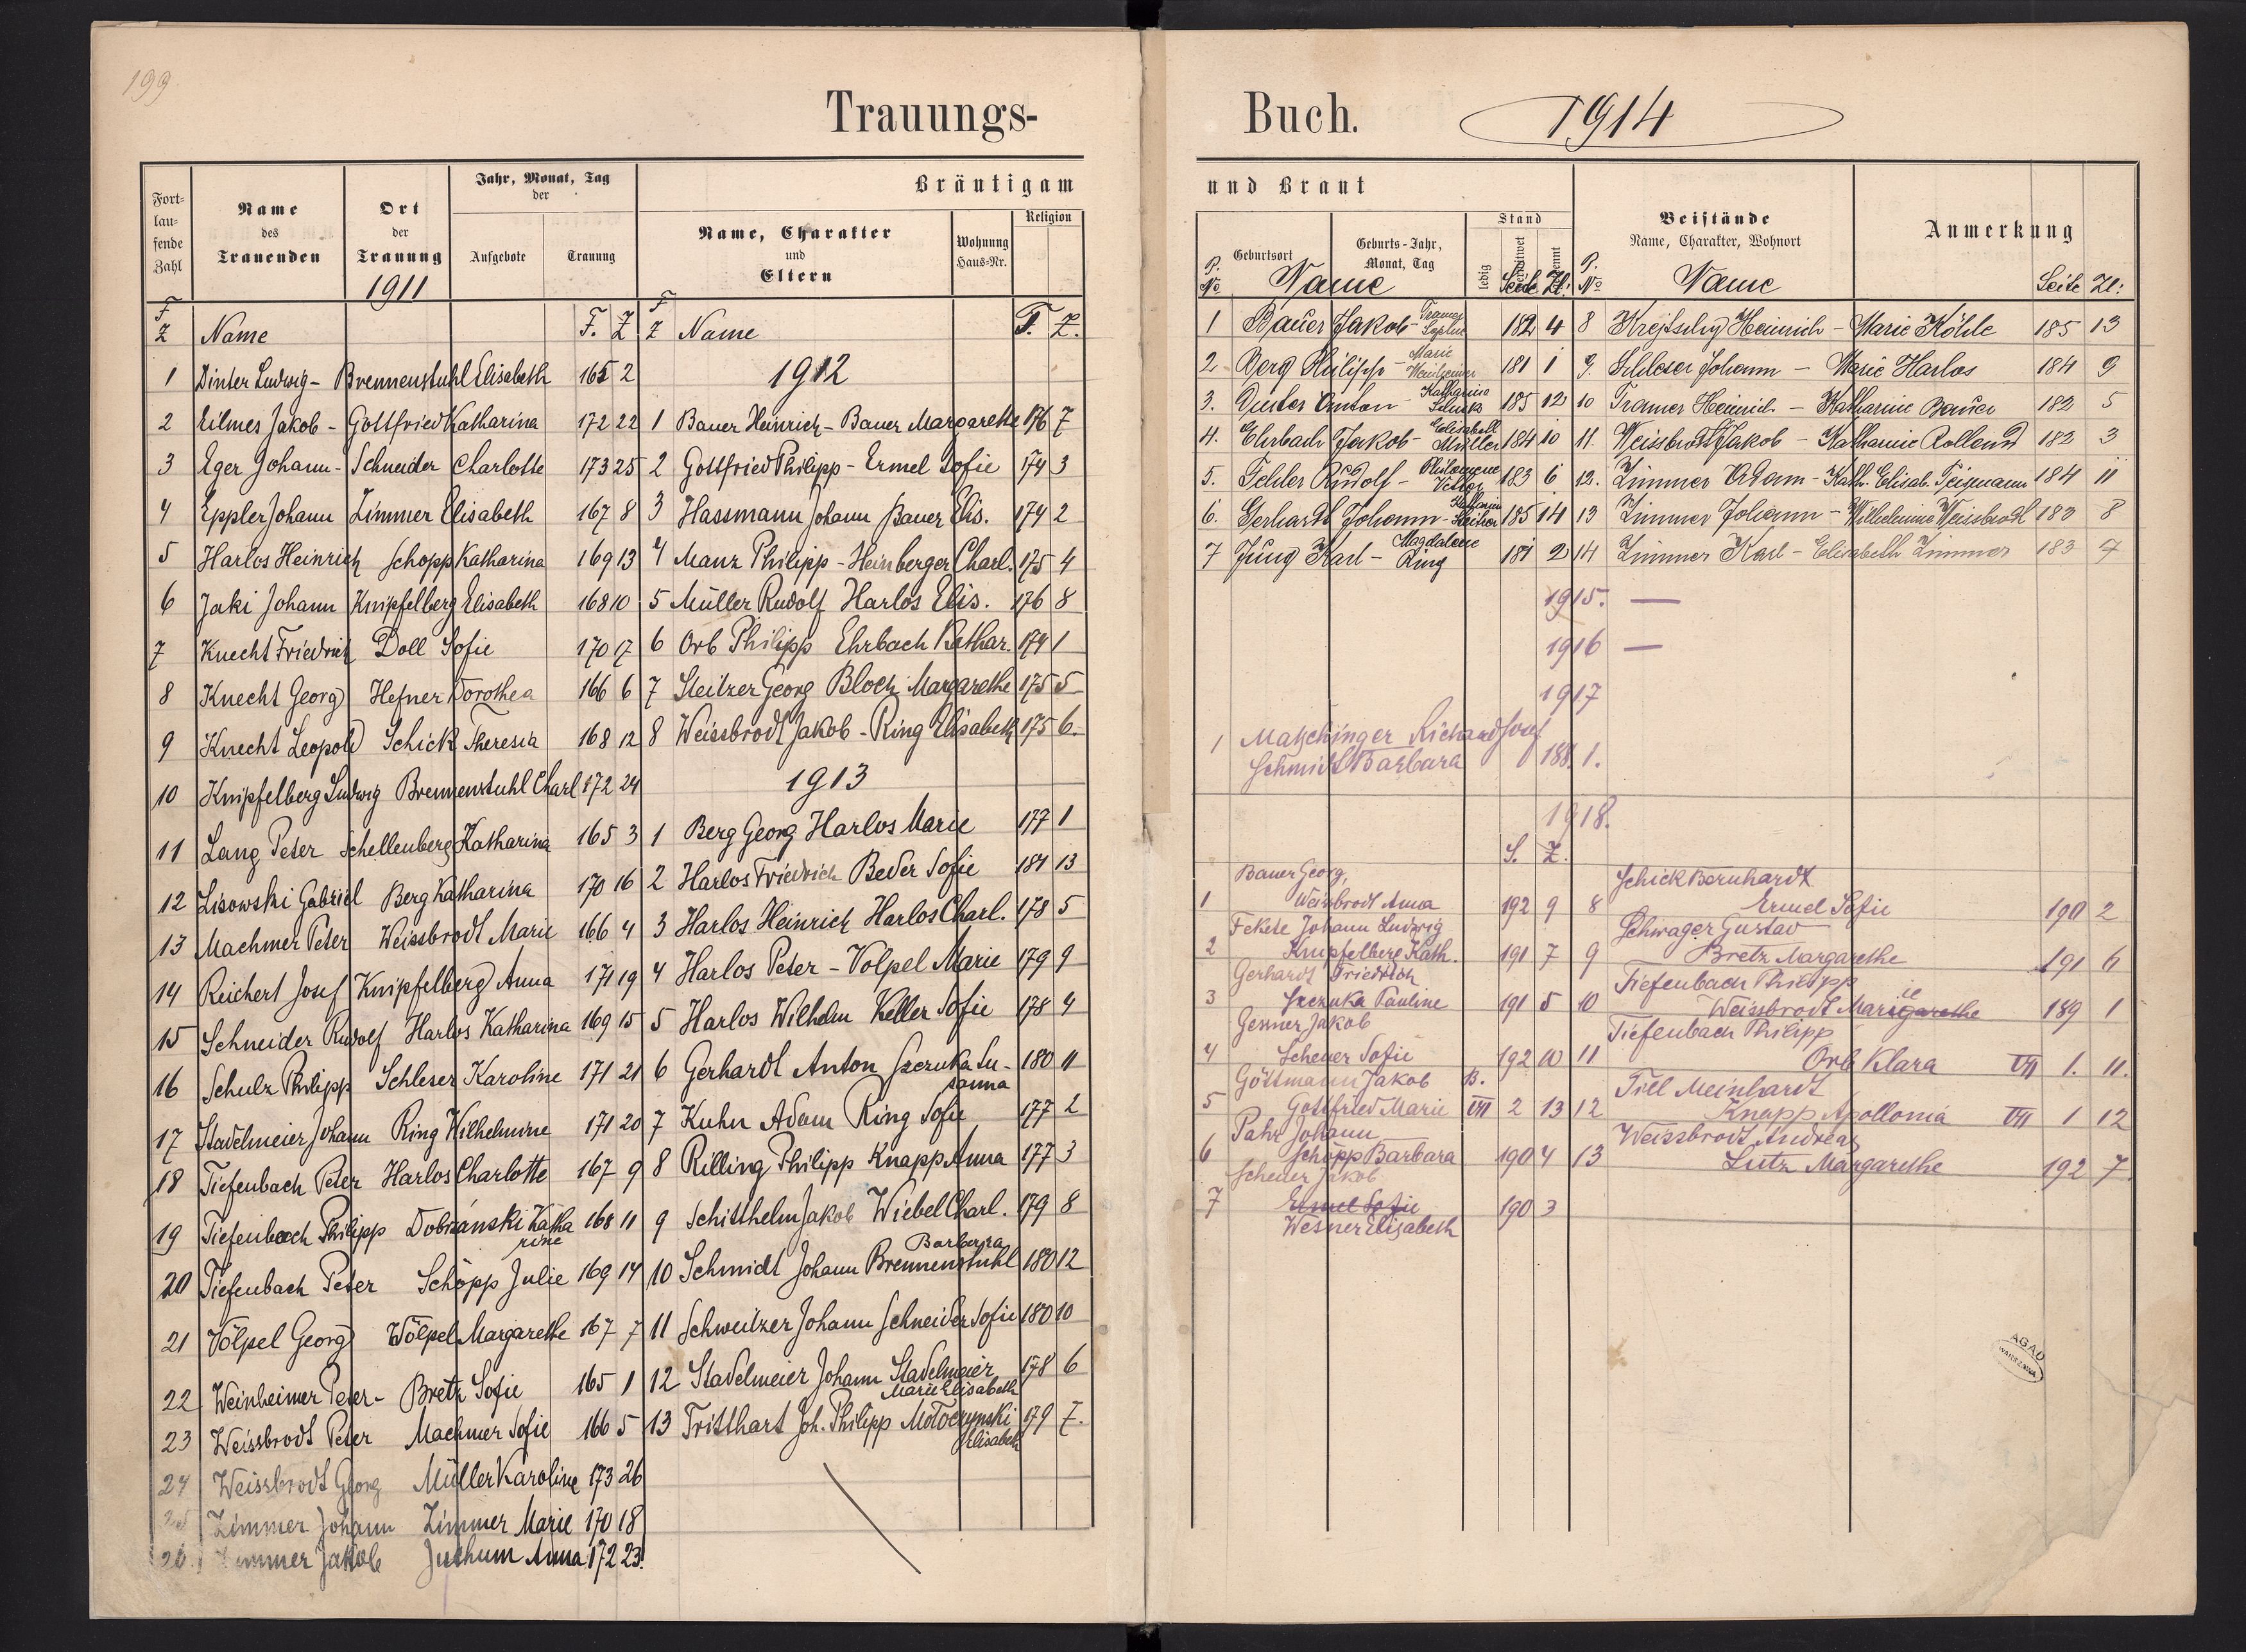 199
Trauungs-
Fort-
lau-
fende
Zahl
Name
des
Trauenden
Ort
der
Trauung
1911
Jahr, Monat, Tag
der
Aufgebote
Trauung
Bräutigam
Name, Charakter
und
Eltern
Wohnung
Haus-Nr.
Religion
F
Z Name F. Z
1 Dinter Ludwig - Brennenstuhl Elisabeth 165 2
2 Eilmes Jakob - Gottfried Katharina 172 22
3 Eger Johann - Schneider Charlotte 173 25
4 Eppler Johann Zimmer Elisabeth 167 8
5 Harlos Heinrich Schopp Katharina 169 13
6 Jaki Johann Knipfelberg Elisabeth 168 10
7 Knecht Friedrich Doll Sofie 170 17
8 Knecht Georg Hefner Dorothea 166 6
9 Knecht Leopold Schick Theresia 168 12
10 Knipfelberg Ludwig Brennenstuhl Charl 172 24
11 Lang Peter Schellenberg Katharina 165 3
12 Lisowski Gabriel Berg Katharina 170 16
13 Machmer Peter Weissbrodt Marie 166 4
14 Reichert Josef Knipfelberg Anna 171 19
15 Schneider Rudolf Harlos Katharina 169 15
16 Schulz Philipp Schleser Karoline 171 21
17 Stadelmeier Johann Ring Wilhelmine 171 20
18 Tiefenbach Peter Harlos Charlotte 167 9
19 Tiefenbach Philipp Dobrzanski Katha 168 11
rine
20 Tiefenbach Peter Schöpp Julie 169 14
21 Völpel Georg Wölpel Margarethe 167 7
22 Weinheimer Peter - Bretz Sofie 165 1
23 Weissbrodt Peter Machmer Sofie 166 5
24 Weissbrodt Georg Müller Karoline 173 26
25 Zimmer Johann Zimmer Marie 170 18
26. Zimmer Jakob Juthum Anna 172 23.
F
Z Name F. Z.
1912
1 Bauer Heinrich - Bauer Margarethe 176 7
2 Gottfried Philipp - Ermel Sofie 174 3
3 Hassmann Johann Bauer Elis. 174 2
4 Manz Philipp - Heinberger Charl. 175 4
5 Müller Rudolf Harlos Elis. 176 8
6 Orb Philipp Ehrbach Kathar. 174 1
7 Steitzer Georg Bloch Margarethe 175 5
8 Weissbrodt Jakob - Ring Elisabeth 175 6.
1913
1 Berg Georg Harlos Marie 177 1
2 Harlos Friedrich Beder Sofie 181 13
3 Harlos Heinrich Harlos Charl. 178 5
4 Harlos Peter - Volpel Marie 179 9
5 Harlos Wilhelm Keller Sofie 178 4
6 Gerhardt Anton Szczuka Su- 180 11
sanna
7 Kuhn Adam Ring Sofie 177 2
8 Rilling Philipp Knapp Anna 177 3
9 Schitthelm Jakob Wiebel Charl. 179 8
Barbara
10 Schmidt Johann Brennenstuhl 180 12
11 Schweitzer Johann Schneider Sofie 180 10
12 Stadelmeier Johann Stadelmeier 178 6
Marie Elisabeth
13 Tritthart Joh. Philipp Moloczynski 179 7.
Elisabeth
Buch. 1914
und Braut
Geburtsort
Geburts-Jahr,
Monat, Tag
Stand
ledig
Beistände
Name, Charakter, Wohnort
Anmerkung
P.
No Name Seite Zl:
P.
No Name Seite Zl:
1 Bauer Jakob - Tramer Sophie 182 4
2 Berg Philipp - Marie Weinheimer 181 1
3. Duster Anton - Katharina 185 12
4. Ehrbach Jakob - Elisabeth Müller 184 10
5. Fehler Rudolf - Philomene 183 6
6. Gerhardt Johann - 185 14
7 Jung Karl - Magdalene Ring 181 2
8 Krejtschy Heinrich - Marie Köhle 185 13
9. Schleser Johann - Marie Harlos 184 9
10 Tramer Heinrich - Katharine Bauer 182 5
11. Weissbrodt Jakob - Katharine Rollend 182 3
12. Zimmer Adam - Kath. Elisab. Feigmann 184 11
13 Zimmer Johann - Wilhelmine Weissbrodt 183 8
14 Zimmer Karl - Elisabeth Zimmer 183 7
1915. —
1916 —
1917
1 Matschinger Richard Josef
Schmidt Barbara 188. 1.
1918.
S. Z.
Bauer Georg,
1 Weissbrodt Anna 192 9
Fekete Johann Ludwig
2 Knipfelberg Kath. 191 7
Gerhardt Friedrich
3 Szczuka Pauline 191 5
Jenner Jakob
4 Scheuer Sofie 192 10
Göttmann Jakob B.
5 Gottfried Marie VII 2 13
Pahr Johann
6 Schöpp Barbara 190 4
Scheuer Jakob
7 Ermel Sofie 190 3
Wesner Elisabeth
Schick Bernhardt
8 Ermel Sofie 190 2
Schwager Gustav
9 Bretz Margarethe 191 6
Tiefenbach Philipp
10 Weissbrodt Marigarethe ie 189 1
Tiefenbach Philipp
11 Orb Klara VII 1. 11.
Till Meinhardt
12 Knapp Apollonia VII 1 12
Weissbrodt Andreas
13 Lutz Margarethe 192 7
AGAD
WARSZAWA